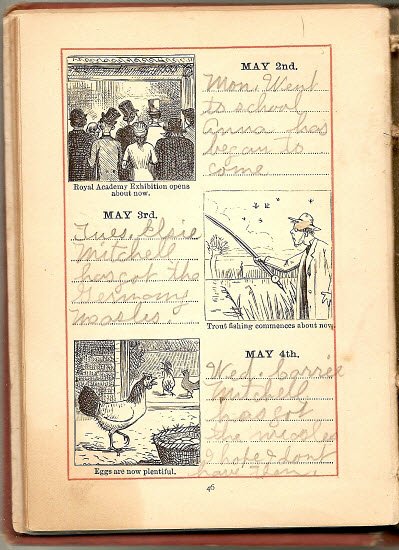 MAY 2nd.
Mon. Went
to school
Anna has
began to
come
Royal Academy Exhibition opens
about now.
MAY 3rd.
Tues. Elsie
Mitchell
has got the
Germany
Measles.
Trout fishing commences about now
MAY 4th.
Wed. Carrie
Mitchell
has got
the measles
I hope I dont
have them.
Eggs are now plentiful.
46